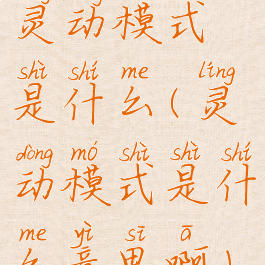 灵动模式
shì shí me líng
是什么(灵
dòng mó shì shì shí
动模式是什
me yì sī ā
么意思啊)